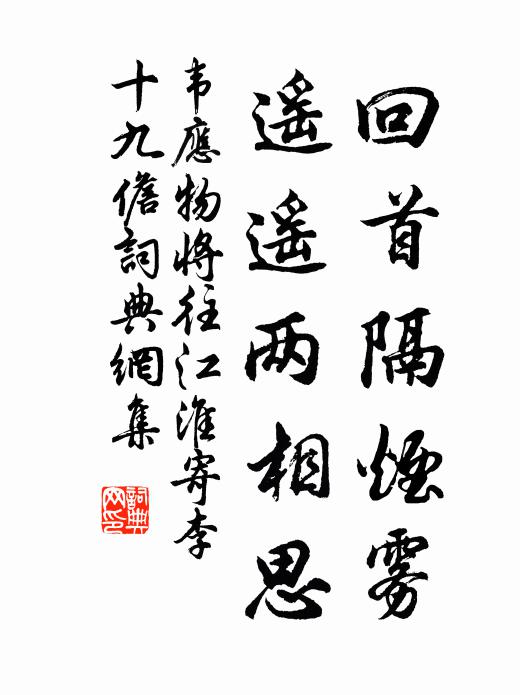 回首隔煙雾
遥遥两相思
韦應物将往江淮寄李
十九儋詞典網集
詞典
网印